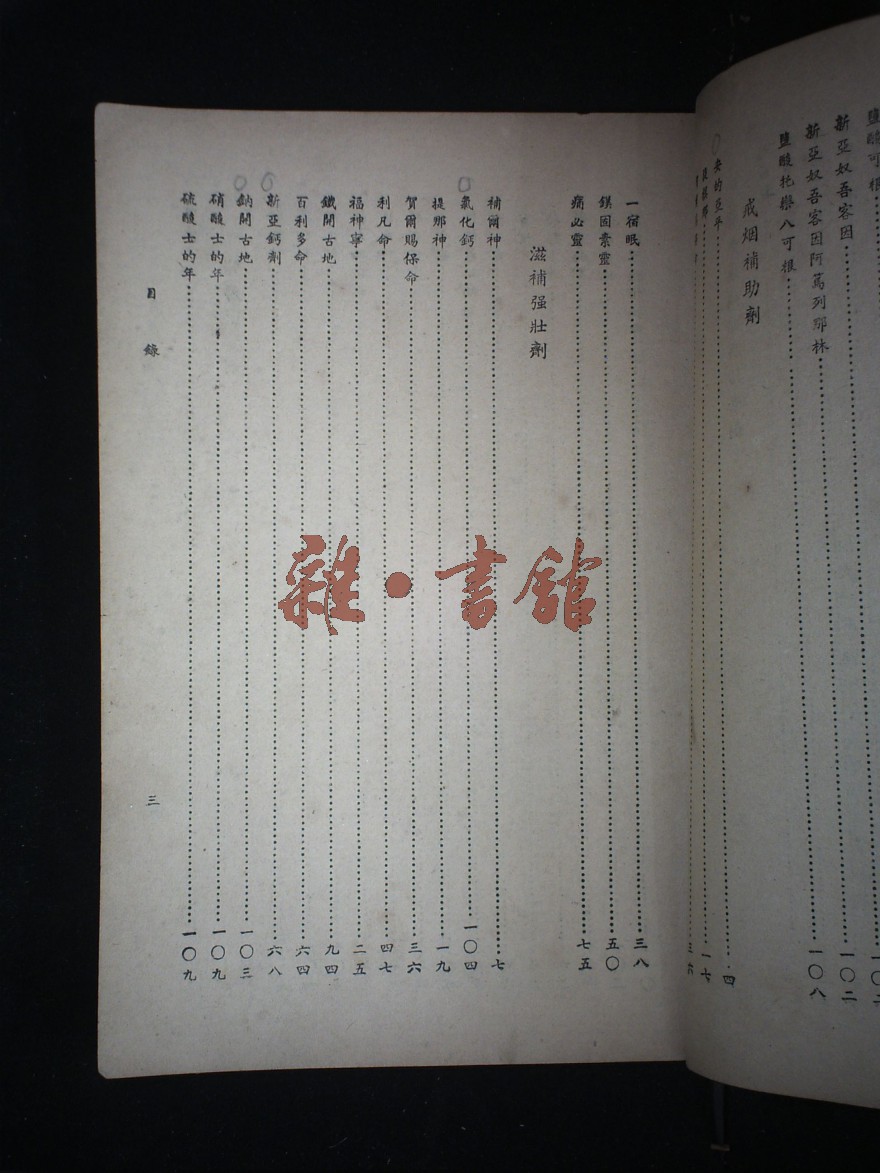 新亞奴吾客因……一〇二
新亞奴吾客因阿篤列那林……一〇八
鹽酸托樂八可根
戒烟補助劑
安的亞平……四
一七
三六
一宿眠……三八
鎂固素靈……五〇
痛必靈……七五
滋補强壯劑
補爾神……七
氯化鈣……一〇四
提那神……一九
賀爾賜保命……三六
利凡命……四七
福神寧……二五
鐵開古地……九四
百利多命……六四
新亞鈣劑……六八
鈉開古地……一〇三
硝酸士的年……一〇九
硫酸士的年……一〇九
目錄
三
雜·書館